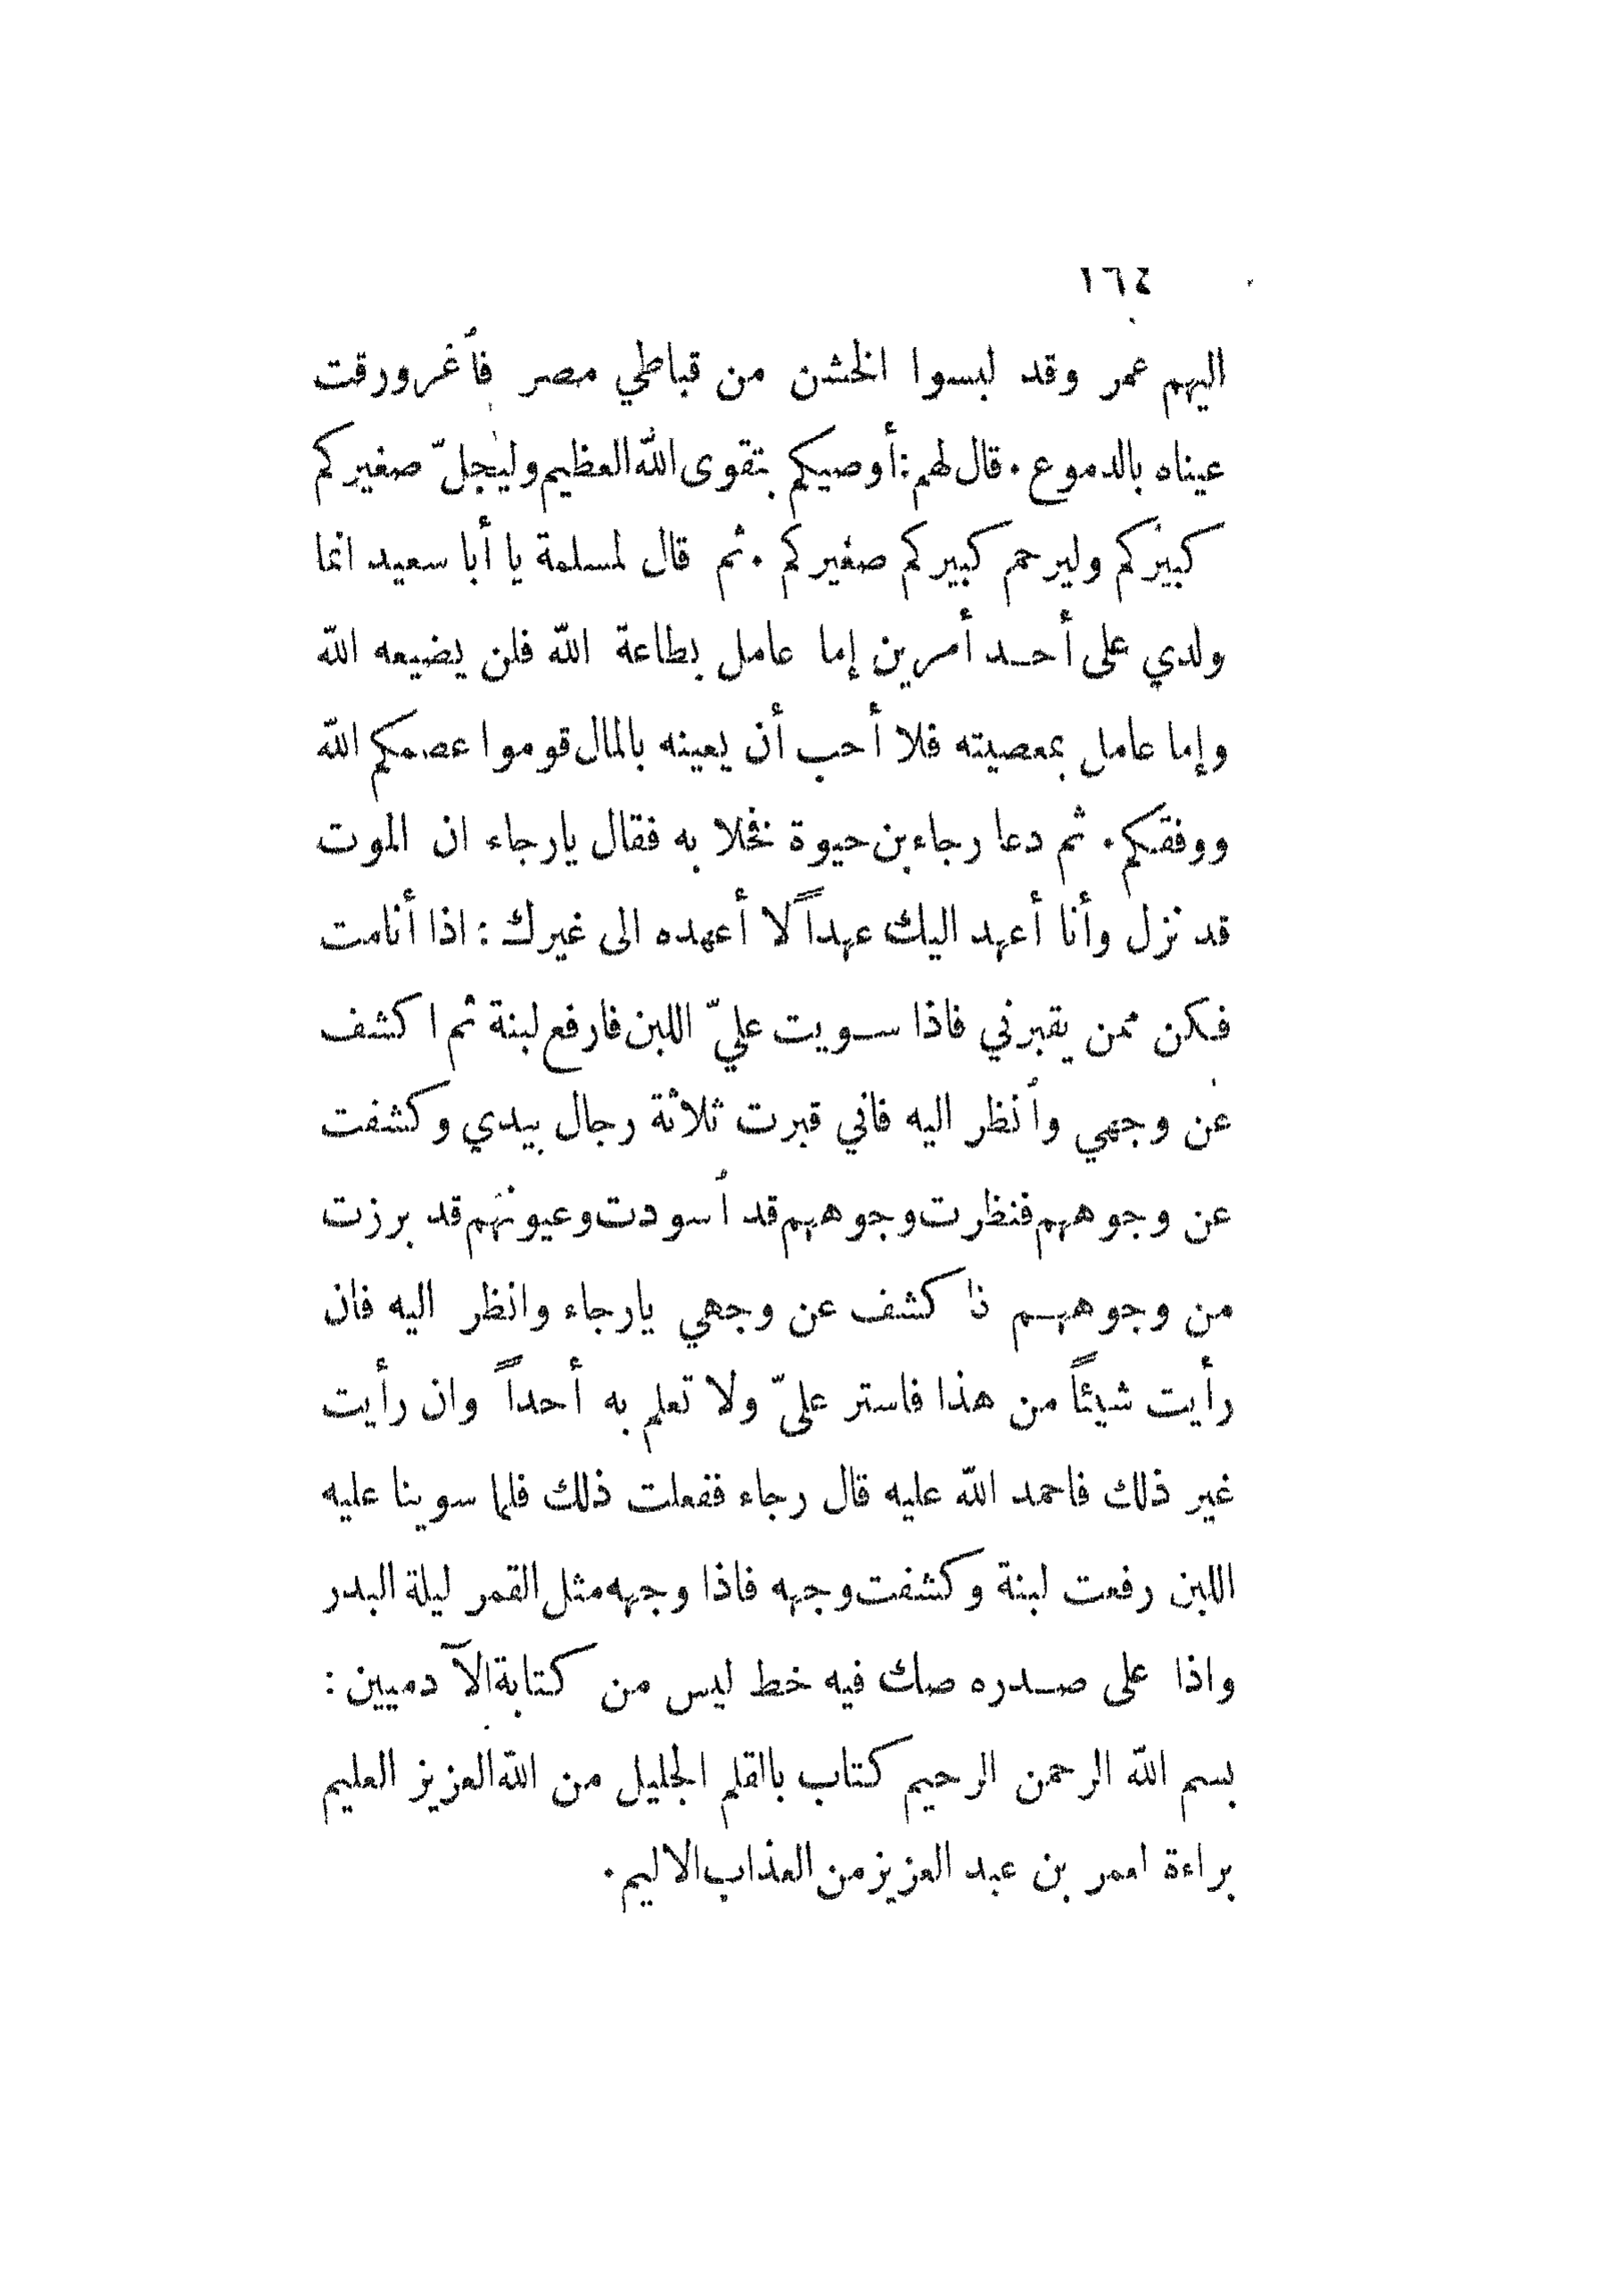 ١٦٤
اليهم عمر وقد لبسوا الخشن من قباطي مصر فأغرورقت
عيناه بالدموع . قال لهم : أوصيكم بتقوى الله العظيم وليجلّ صغيركم
كبيركم وليرحم كبيركم صغيركم . ثم قال لمسلمة يا أبا سعيد انما
ولدي على أحد أمرين إما عامل بطاعة الله فلن يضيعه الله
وإما عامل بمعصيته فلا أحب أن يعينه بالمال قوموا عصمكم الله
ووفقكم . ثم دعا رجاء بن حيوة نخلا به فقال يا رجاء ان الموت
قد نزل وأنا أعهد اليك عهداً لا أعهده الى غيرك : اذا أنا مت
فكن ممن يقبرني فاذا سويت عليّ اللبن فارفع لبنة ثم اكشف
عن وجهي وأنظر اليه فاني قبرت ثلاثة رجال بيدي وكشفت
عن وجوههم فنظرت وجوههم قد أسودت وعيونهم قد برزت
من وجوههم فاكشف عن وجهي يا رجاء وانظر اليه فان
رأيت شيئاً من هذا فاستر علىّ ولا تعلم به أحداً وان رأيت
غير ذلك فاحمد الله عليه قال رجاء ففعلت ذلك فلما سوينا عليه
اللبن رفعت لبنة وكشفت وجهه فاذا وجهه مثل القمر ليلة البدر
واذا على صدره صك فيه خط ليس من كتابة الآدميين :
بسم الله الرحمن الرحيم كتاب بالقلم الجليل من الله العزيز العليم
براءة لعمر بن عبد العزيز من العذاب الاليم .